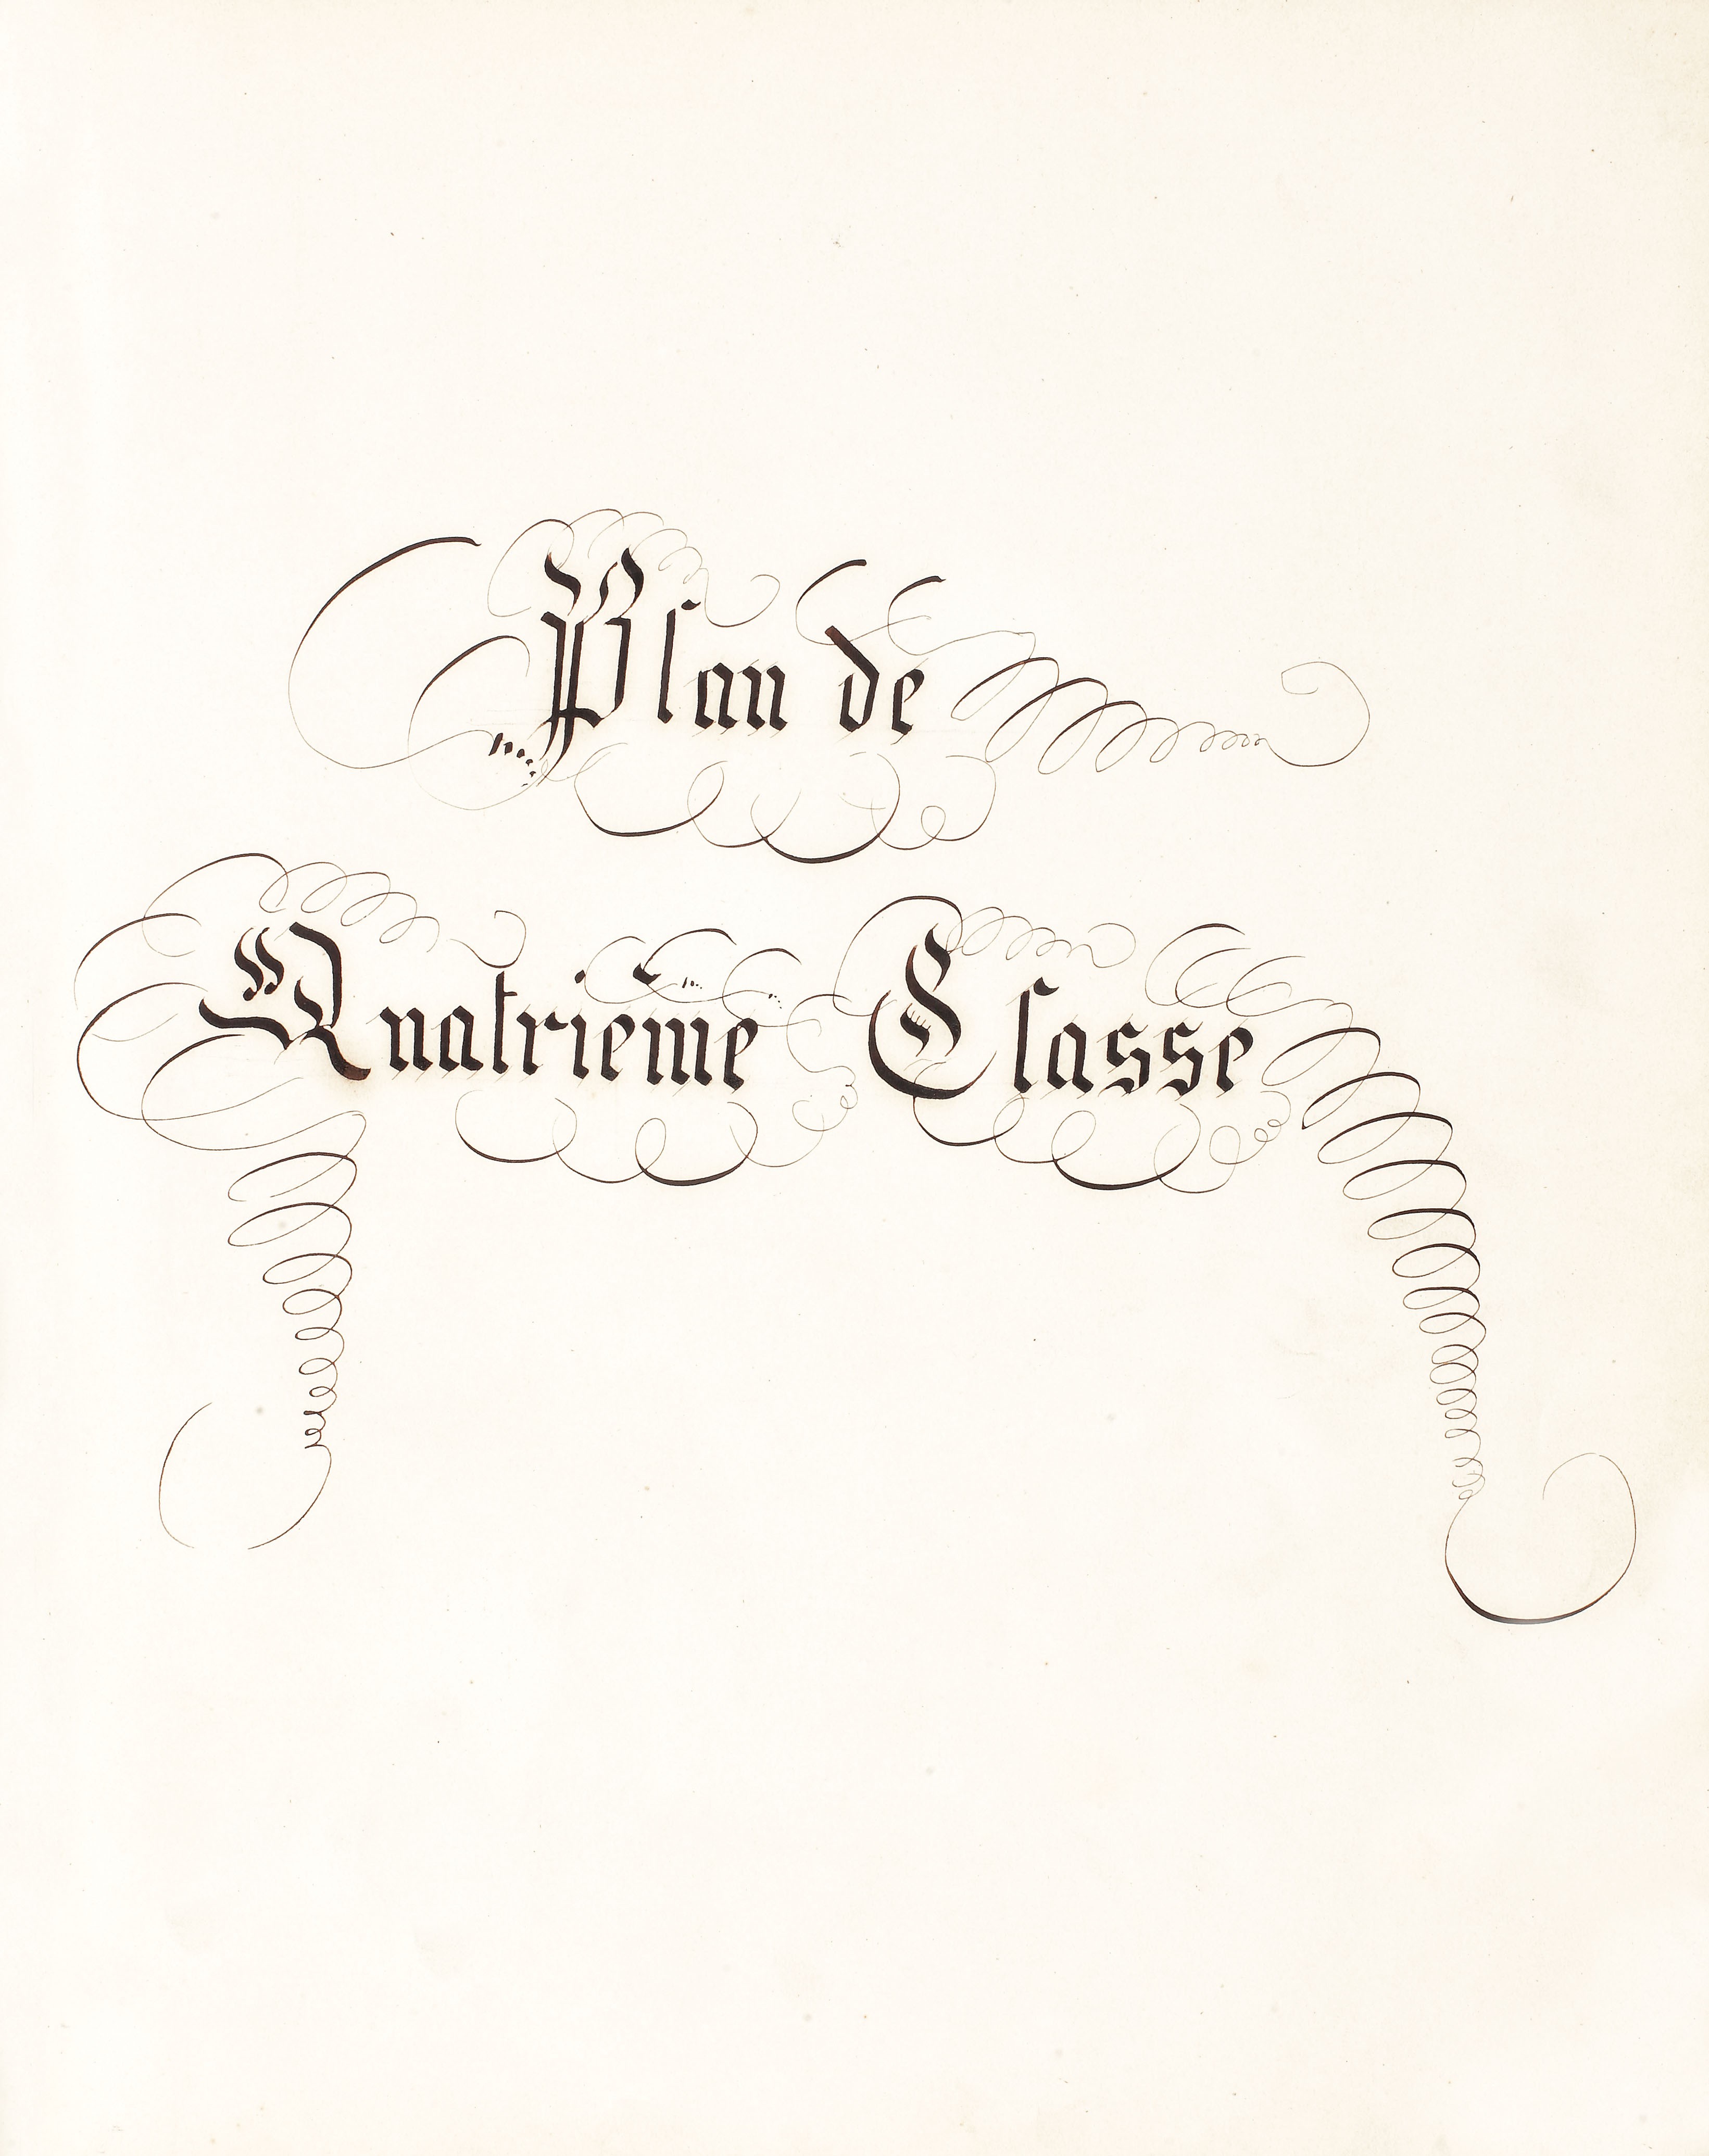 Plan de
Quatrième Classe